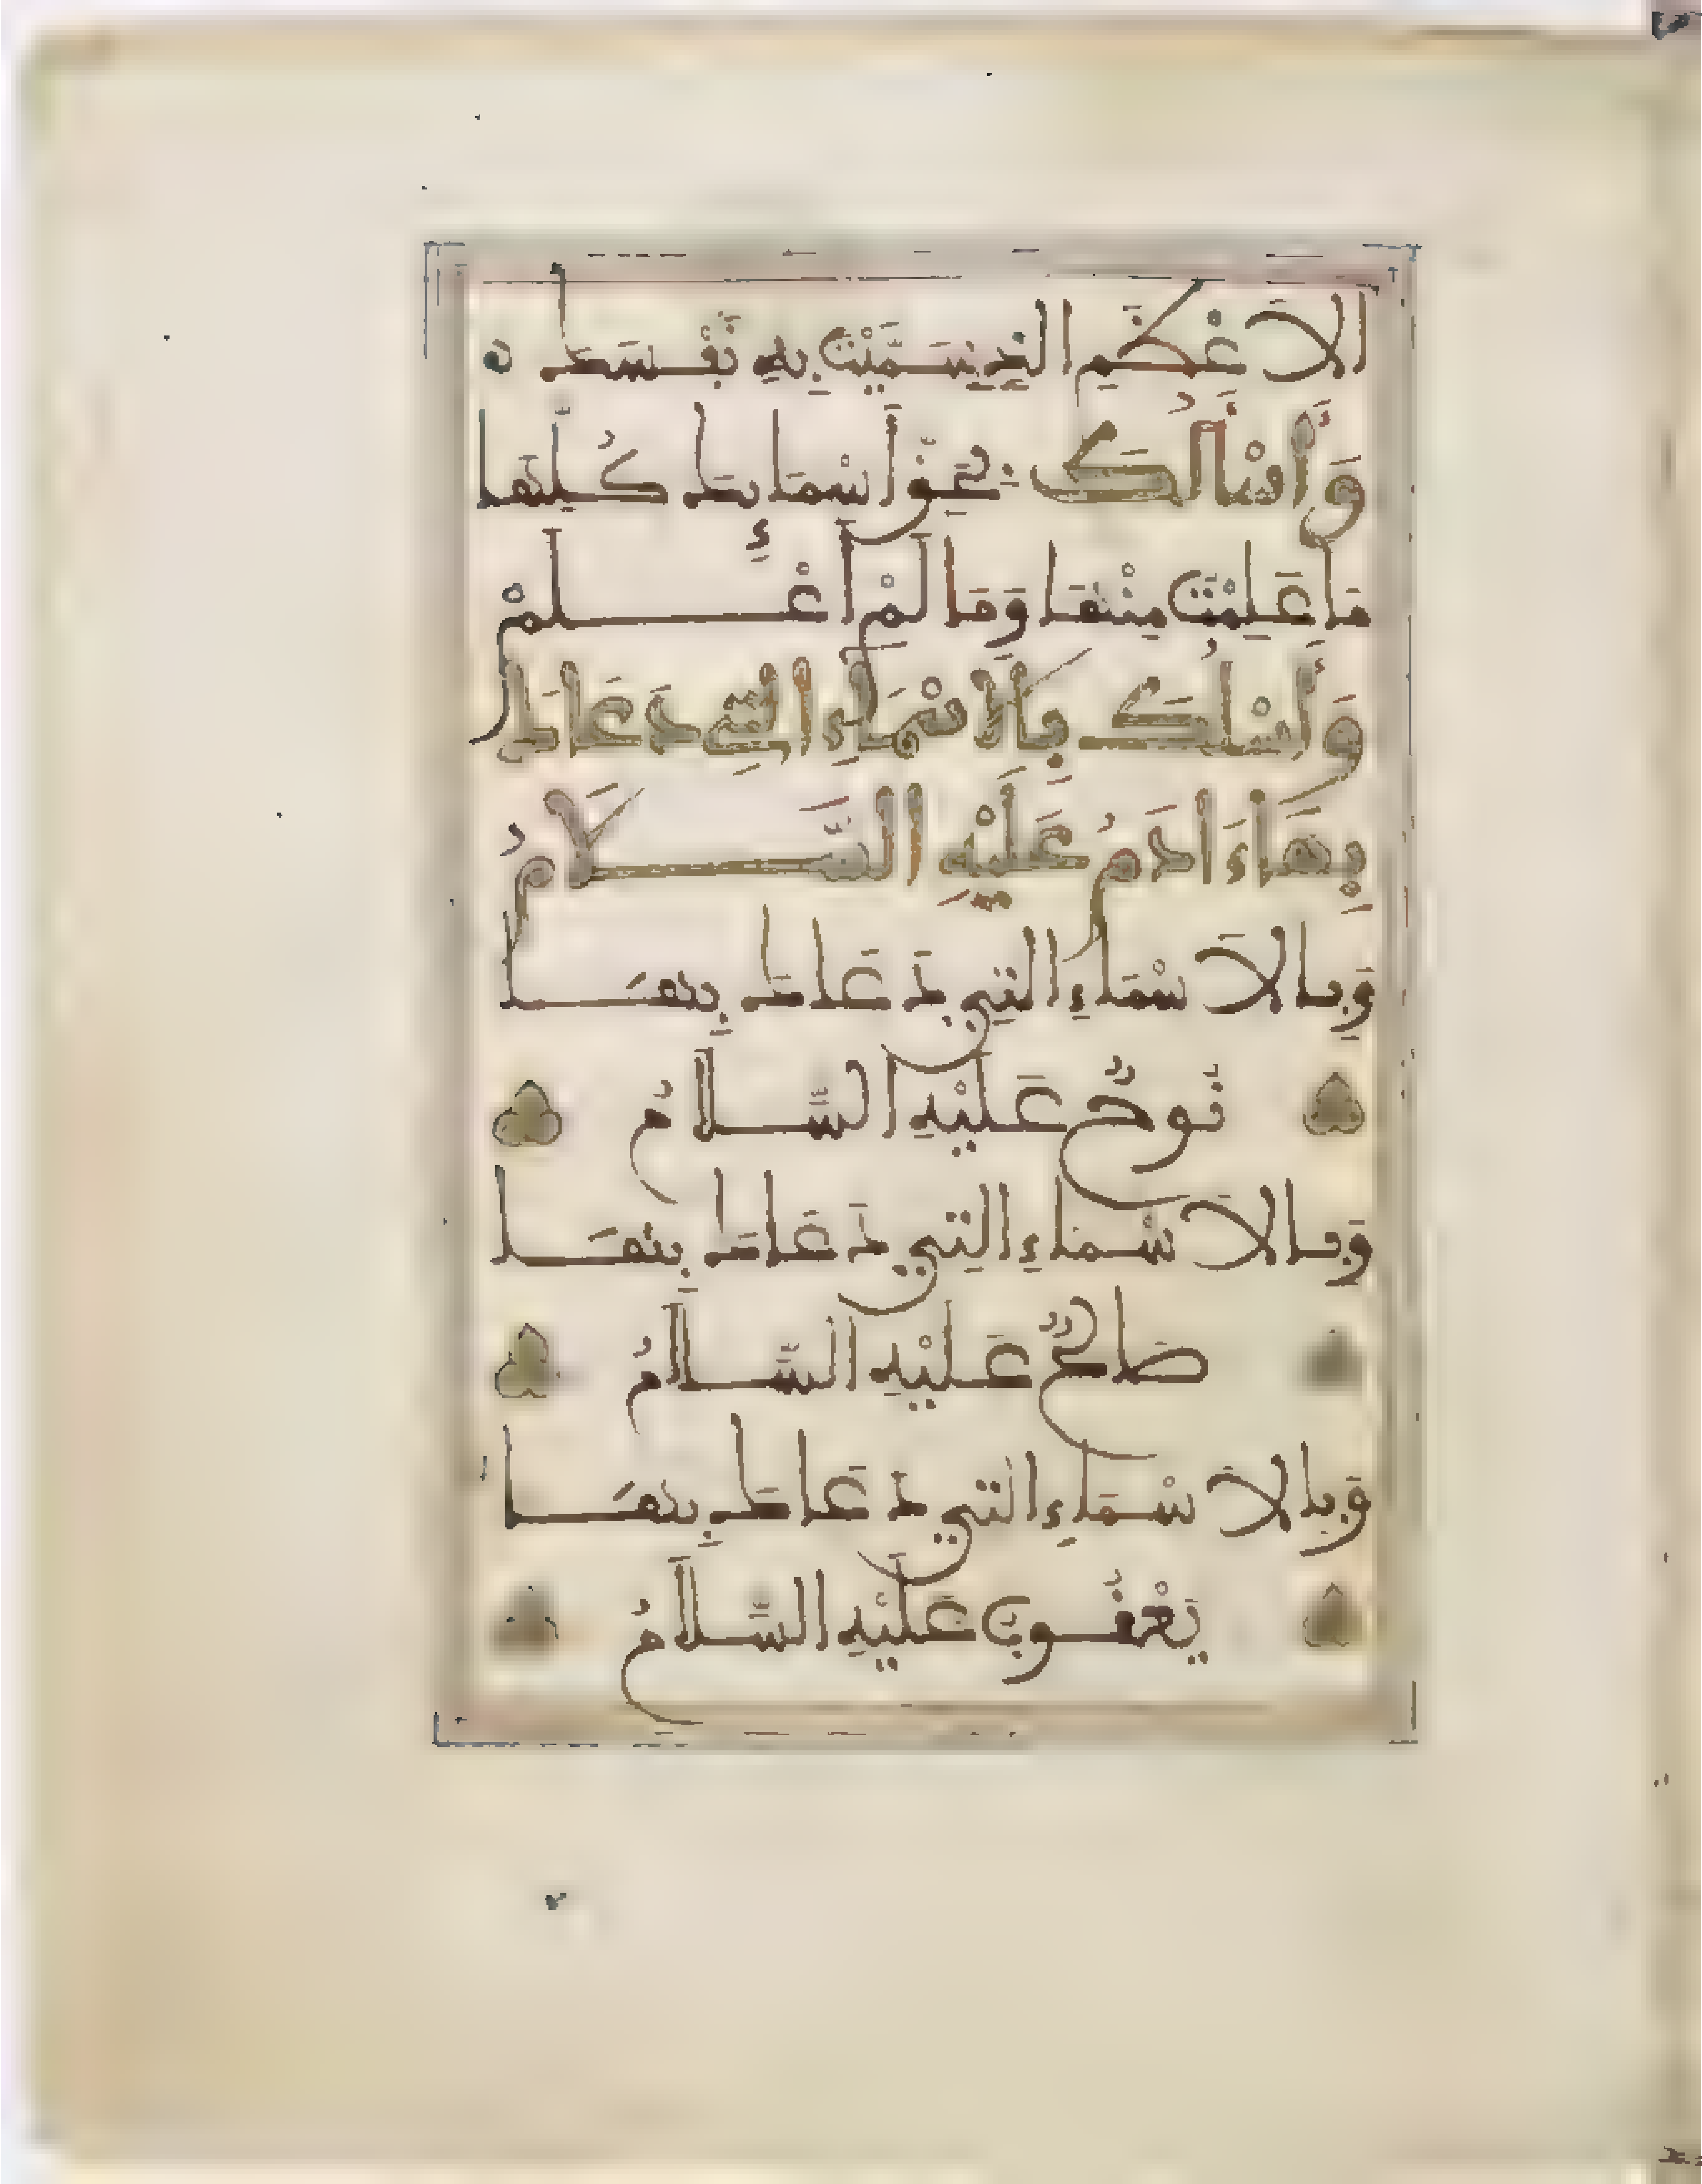 الْاَعْظَمِ الَّذِي سَمَّيْتَ بِهِ نَفْسَكَ
وَأَسْأَلُكَ بِحَقِّ أَسْمَائِكَ كُلِّهَا
مَا عَلِمْتُ مِنْهَا وَمَا لَمْ أَعْلَمْ
وَأَسْئَلُكَ بِالْأَسْمَاءِ الَّتِي دَعَاكَ
بِهَا ءَادَمُ عَلَيْهِ السَّلَامُ
وَبِالْاَسْمَاءِ الَّتِي دَعَاكَ بِهَا
نُوحٌ عَلَيْهِ السَّلَامُ
وَبِالْاَسْمَاءِ الَّتِي دَعَاكَ بِهَا
صَالِحٌ عَلَيْهِ السَّلَامُ
وَبِالْاَسْمَاءِ الَّتِي دَعَاكَ بِهَا
يَعْقُوبُ عَلَيْهِ السَّلَامُ